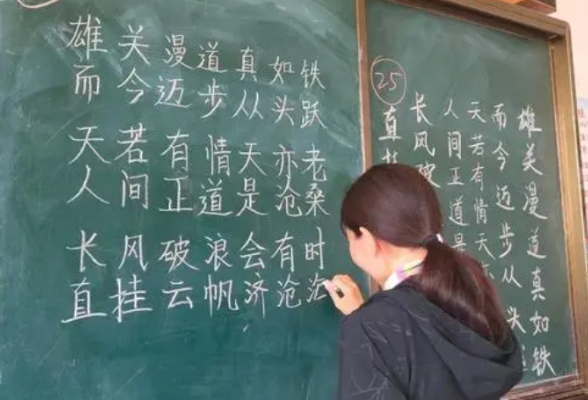 雄关漫道真如铁
而今迈步从头跃
天若有情天亦老
人间正道是沧桑
长风破浪会有时
直挂云帆济沧
25
雄关漫道真如铁
而今迈步从头
天若有情天
人间正道是
长风破
直挂